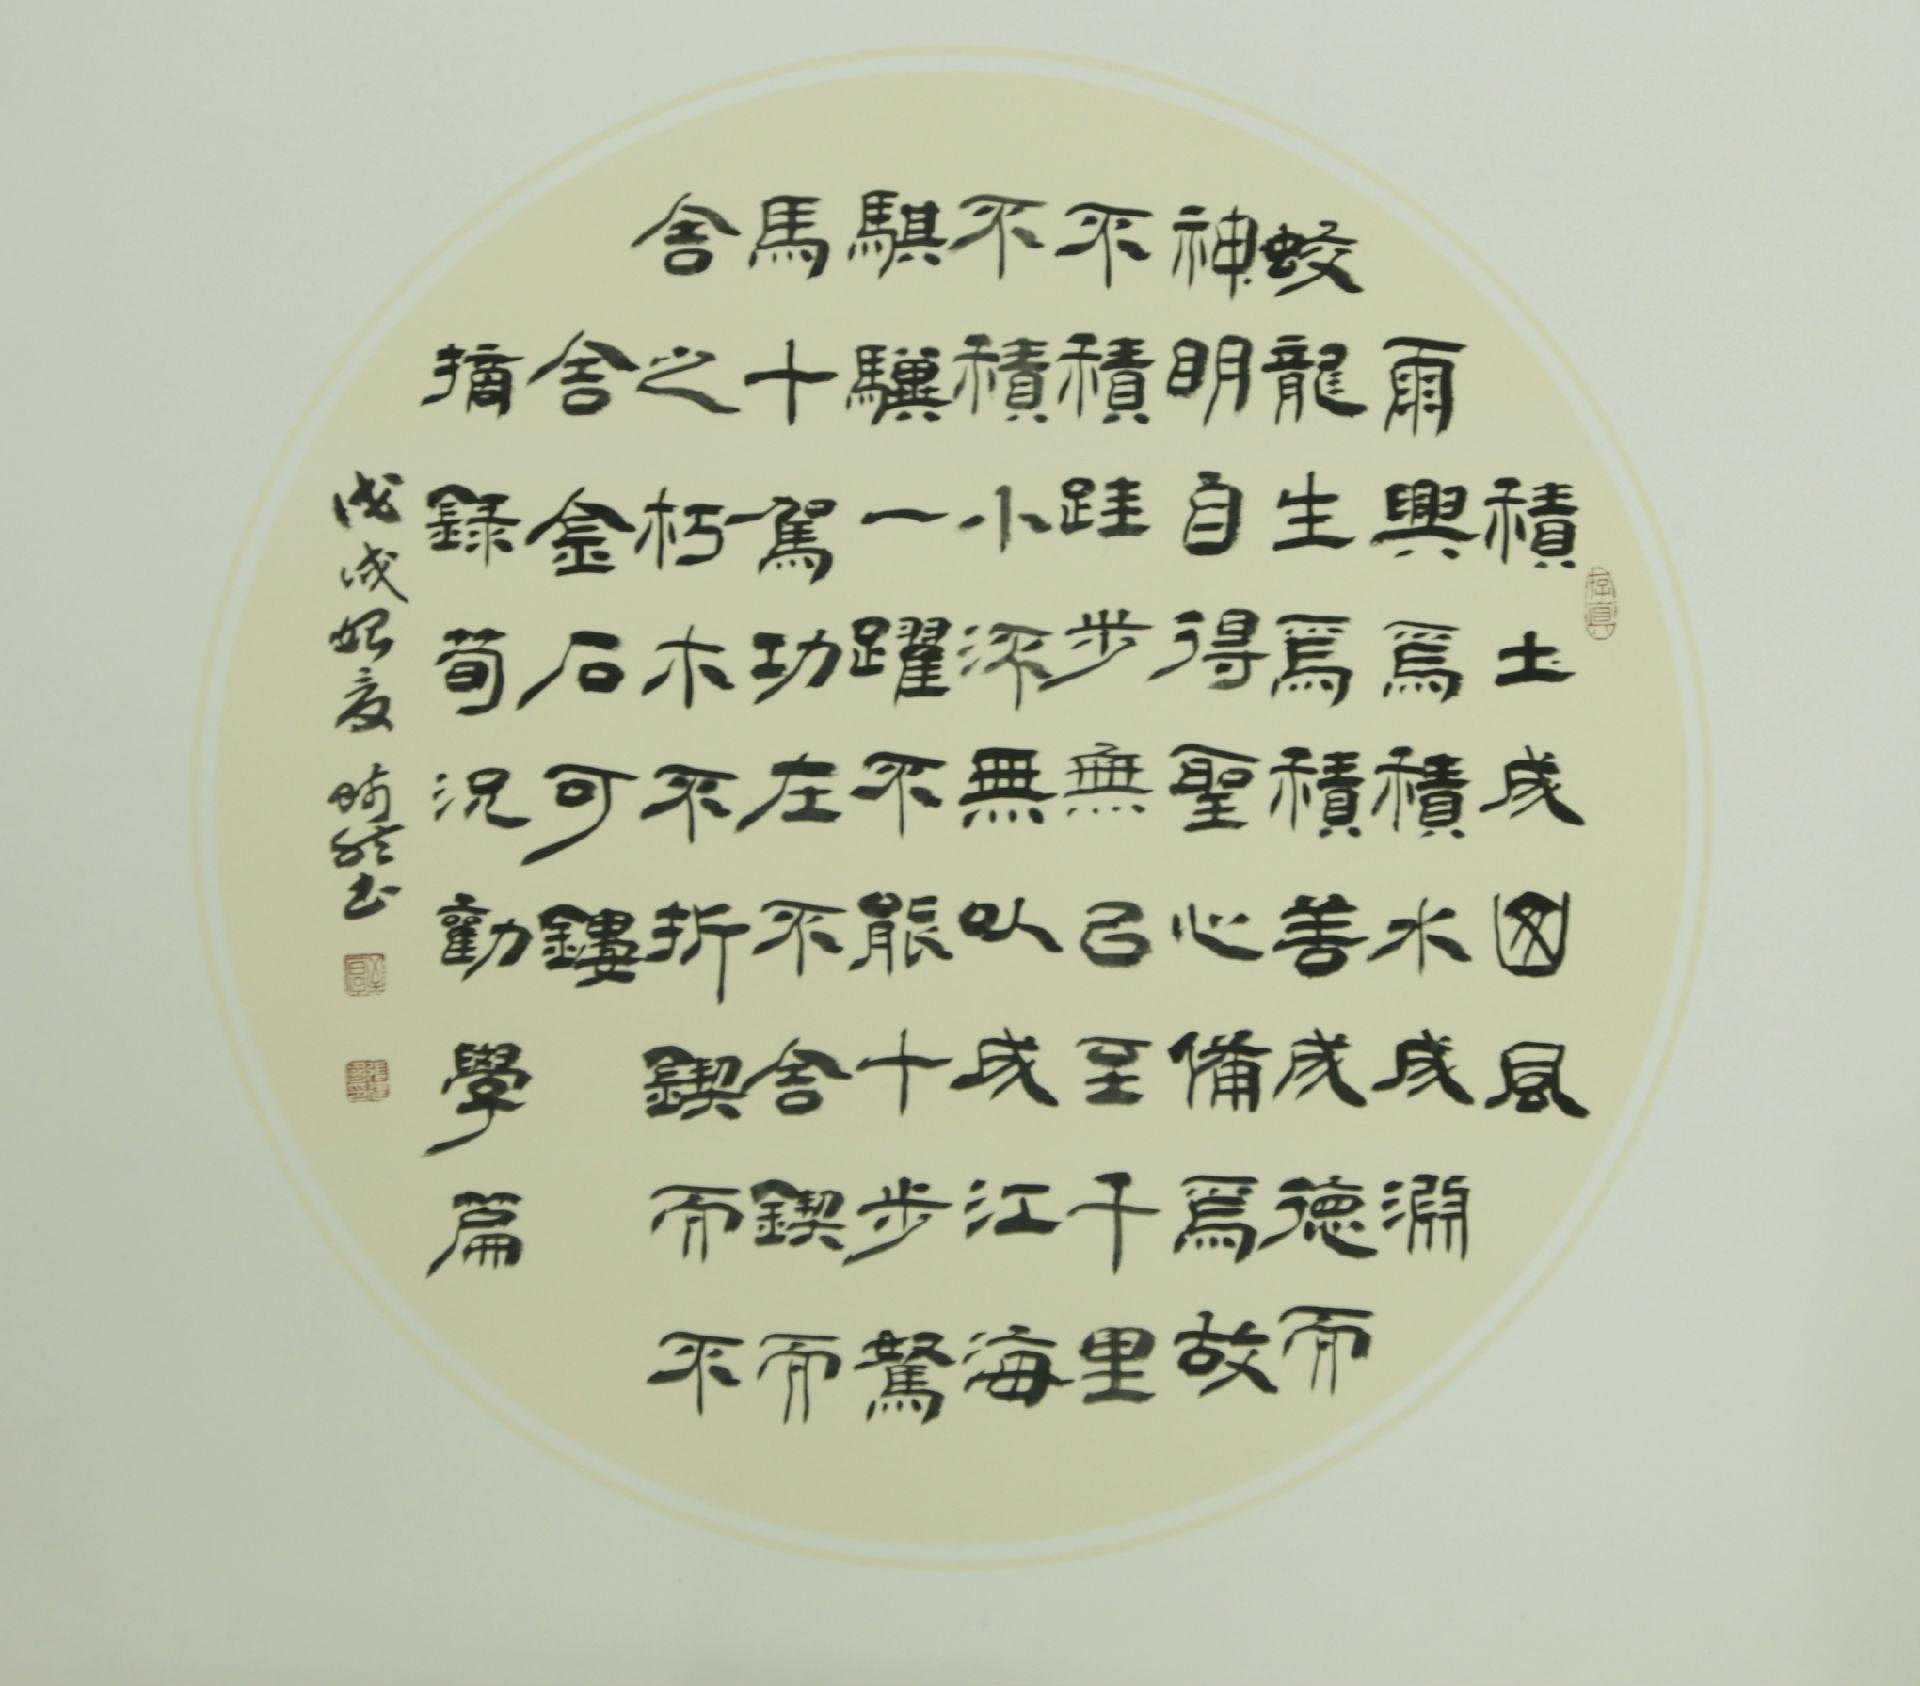 存真
積土成山風
雨興焉積水成淵
蛟龍生焉積善成德而
神明自得聖心備焉故
不積跬步無已至千里
不積小流無以成江海
騏驥一躍不能十步駑
馬十駕功在不舍鍥而
舍之朽木不折鍥而不
舍金石可鏤
摘錄荀況勸學篇
戊戌始夏 书